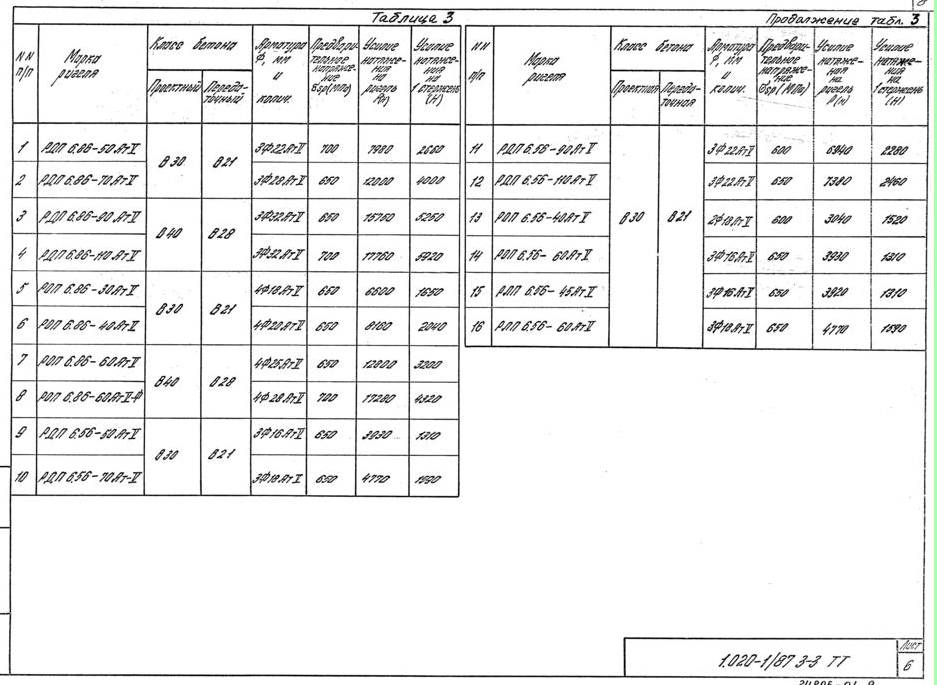 8
Таблица 3
NN п/п | Марка ригеля | Класс бетона | Арматура Ф, мм и колич. | Предвари- тельное напряже- ние бsp(МПа) | Усилие натяже- ния на ригель Р(н) | Усилие натяже- ния на 1 стержень (Н)
Проектный | Переда- точный
1 | РДП 6.86-50АтV | В30 | В21 | 3Ф22АтV | 700 | 7980 | 2660
2 | РДП 6.86-70АтV | 3Ф28АтV | 650 | 12000 | 4000
3 | РДП 6.86-90АтV | В40 | В28 | 650 | 15760 | 5250
4 | РДП 6.86-110АтV | 3Ф32АтV | 700 | 17760 | 5920
5 | РОП 6.86-30АтV | В30 | В21 | 4Ф18АтV | 650 | 6600 | 1650
6 | РОП 6.86-40АтV | 4Ф20АтV | 650 | 8160 | 2040
7 | РОП 6.86-60АтV | В40 | В28 | 4Ф25АтV | 650 | 12800 | 3200
8 | РОП 6.86-60АтV-Ф | 4Ф28АтV | 700 | 17280 | 4320
9 | РДП 6.56-50АтV | В30 | В21 | 3Ф16АтV | 650 | 3930 | 1310
10 | РДП 6.56-70Ат-V | 3Ф18АтV | 650 | 4770 | 1590
Продолжение табл. 3
NN п/п | Марка ригеля | Класс бетона | Арматура Ф, мм и колич. | Предвари- тельное напряже- ние бsp(МПа) | Усилие натяже- ния на ригель Р(н) | Усилие натяже- ния на 1 стержень (Н)
Проектная | Переда- точная
11 | РДП 6.56-90АтV | В30 | В21 | 3Ф22АтV | 600 | 6840 | 2280
12 | РДП 6.56-110АтV | 3Ф22АтV | 650 | 7380 | 2460
13 | РОП 6.56-40АтV | 2Ф18АтV | 600 | 3040 | 1520
14 | РОП 6.56-60АтV | 3Ф16АтV | 650 | 3930 | 1310
15 | РЛП 6.56-45АтV | 3Ф16АтV | 650 | 3920 | 1310
16 | РЛП 6.56-60АтV | 3Ф18АтV | 650 | 4770 | 1590
1.020-1/87 3-3 ТТ
Лист
6